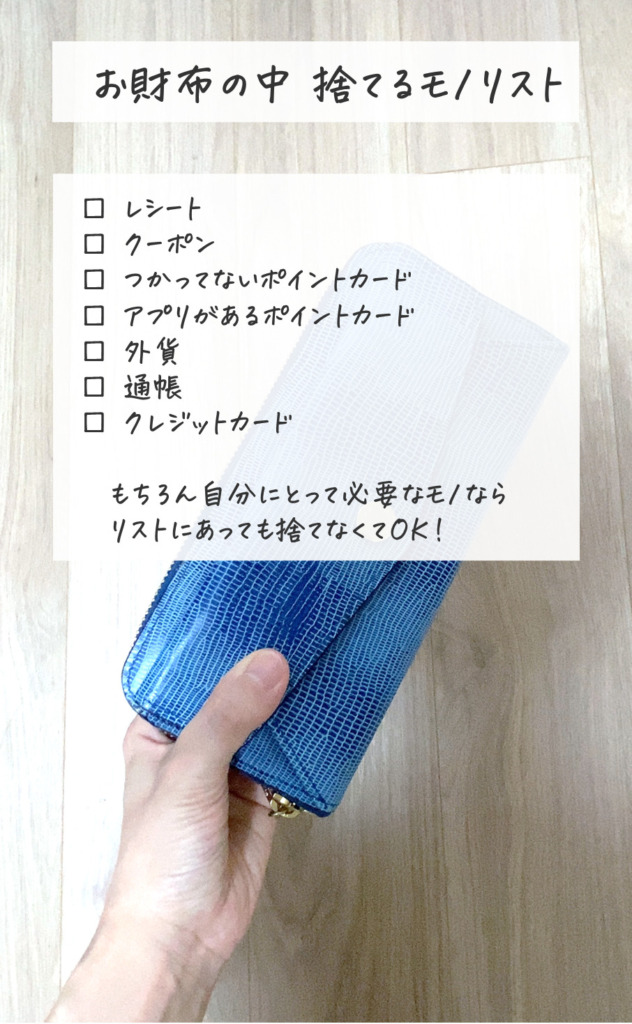 お財布の中 捨てるモノリスト
□ レシート
□ クーポン
□ つかってないポイントカード
□ アプリがあるポイントカード
□ 外貨
□ 通帳
□ クレジットカード
もちろん自分にとって必要なモノなら
リストにあっても捨てなくてOK!